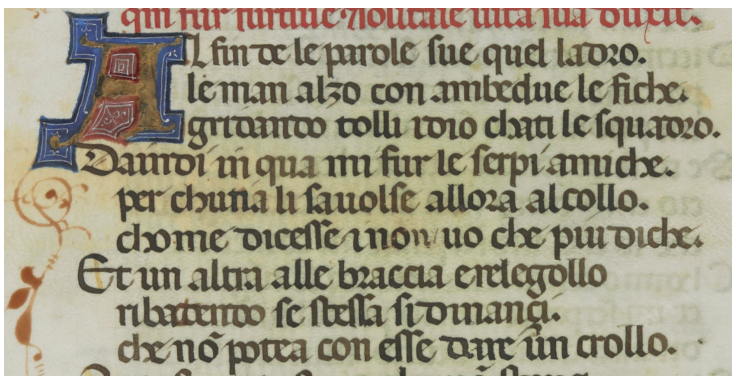 qui fur furtiue uolutate uita sua duxit.
Al fin de le parole sue quel ladro.
le man alzo con ambedue le fiche.
gridando tolli idio chati le squadro.
Da indi in qua mi fur le serpi amiche.
per chuna li sauolse allora al collo.
chome dicesse i non uo che piu diche.
Et un altra alle braccia e relegollo
ribatendo se stessa si dinançi.
che nō potea con esse dare un crollo.